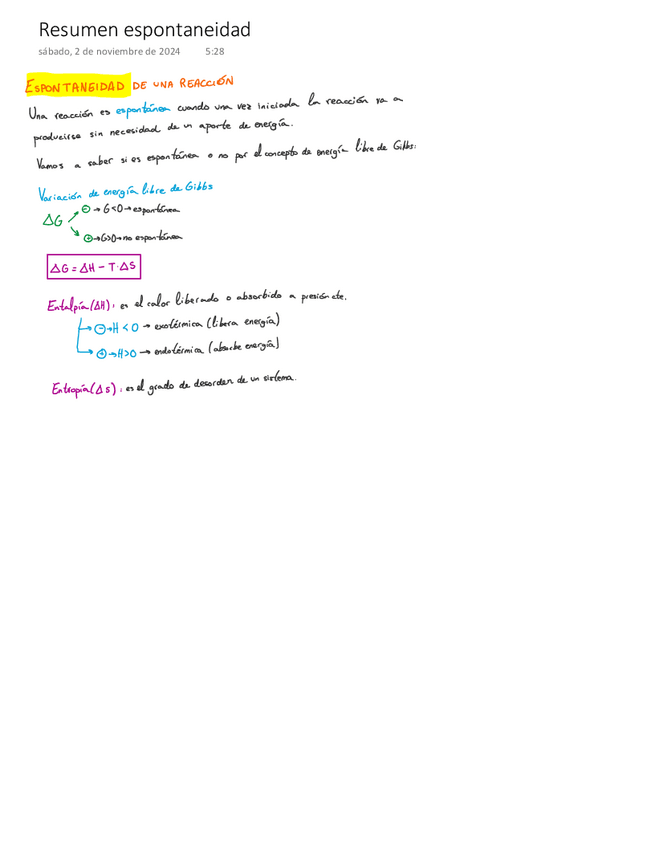 Resumen espontaneidad
sábado, 2 de noviembre de 2024 5:28
ESPONTANEIDAD DE UNA REACCIÓN
Una reacción es espontánea cuando una vez iniciada la reacción va a
producirse sin necesidad de un aporte de energía.
Vamos a saber si es espontánea o no por el concepto de energía libre de Gibbs:
Variación de energía libre de Gibbs
ΔG ⊖→ G<0→espontánea
⊕→G>0→no espontánea
ΔG = ΔH - T·ΔS
Entalpía(ΔH): es el calor liberado o absorbido a presión cte.
⊖→H < 0 → exotérmica (libera energía)
⊕→H>0 → endotérmica (absorbe energía)
Entropía(ΔS): es el grado de desorden de un sistema.